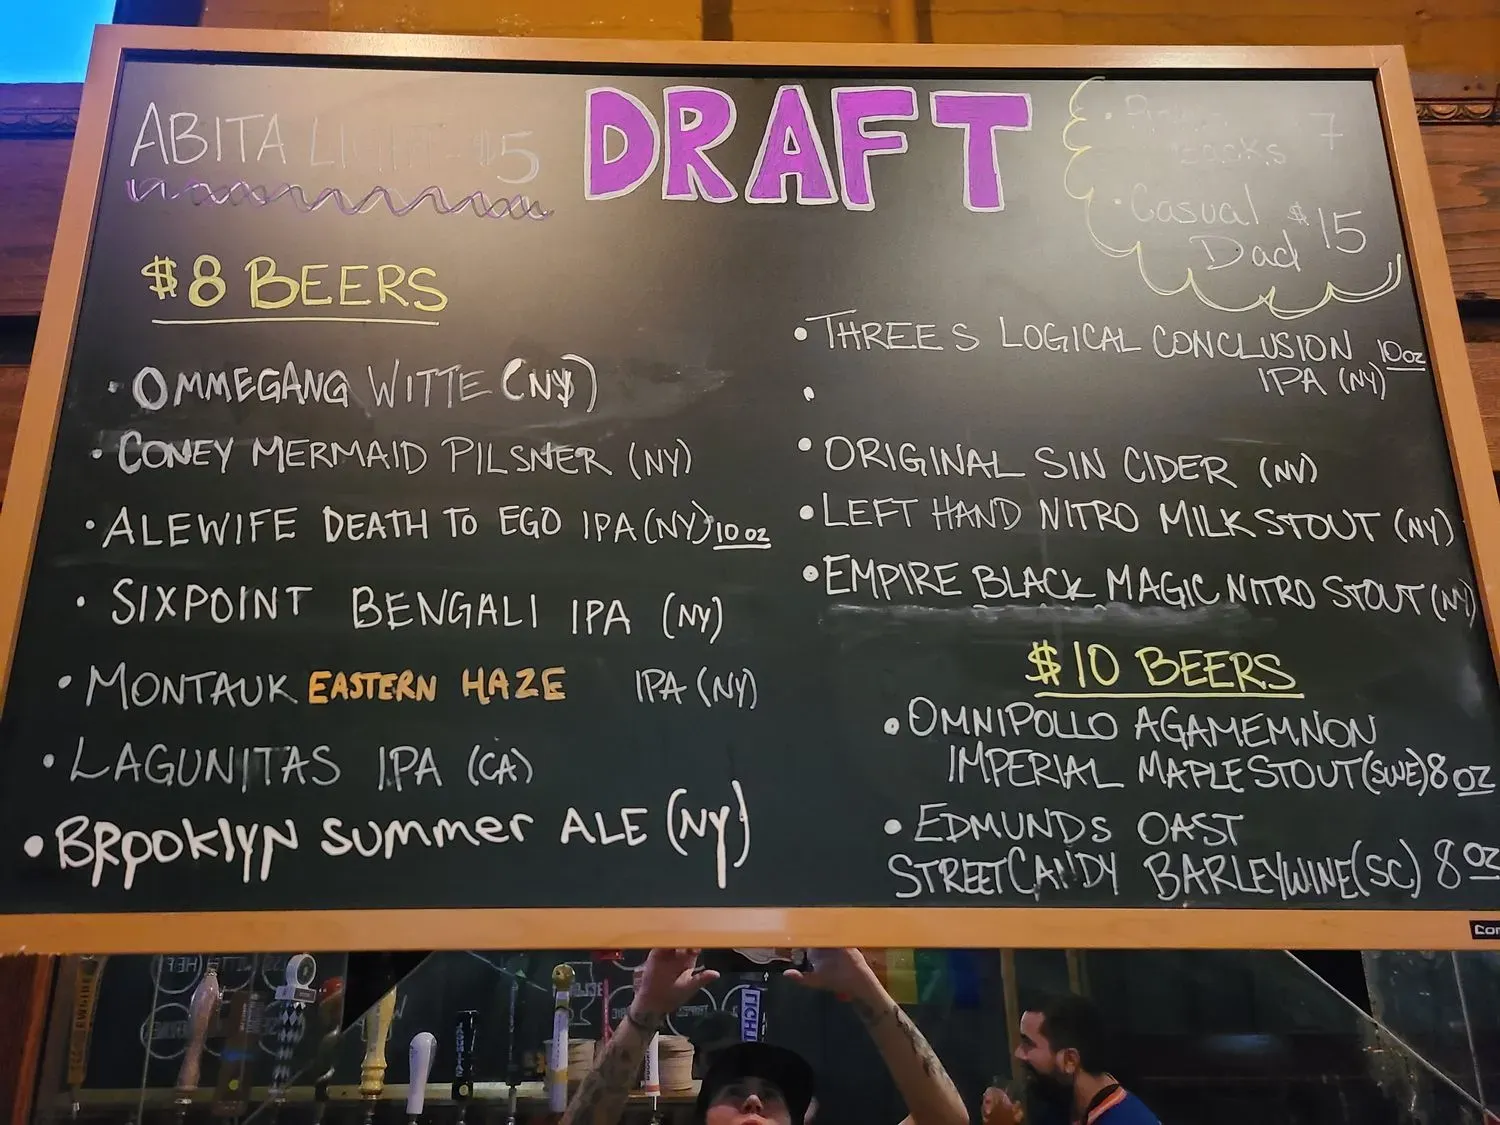 DRAFT
ABITA LIGHT $5
7
Casual $15
Dad
$8 BEERS
• OMMEGANG WITTE (NY)
• CONEY MERMAID PILSNER (NY)
• ALEWIFE DEATH TO EGO IPA (NY) 10 oz
• SIXPOINT BENGALI IPA (NY)
• MONTAUK EASTERN HAZE IPA (NY)
• LAGUNITAS IPA (CA)
• BROOKLYN SUMMER ALE (NY)
• THREES LOGICAL CONCLUSION 10oz
IPA (NY)
•
• ORIGINAL SIN CIDER (NY)
• LEFT HAND NITRO MILK STOUT (NY)
• EMPIRE BLACK MAGIC NITRO STOUT (NY)
$10 BEERS
• OMNIPOLLO AGAMEMNON
IMPERIAL MAPLE STOUT (SWE) 8 OZ
• EDMUNDS OAST
STREET CANDY BARLEYWINE (SC) 8 OZ